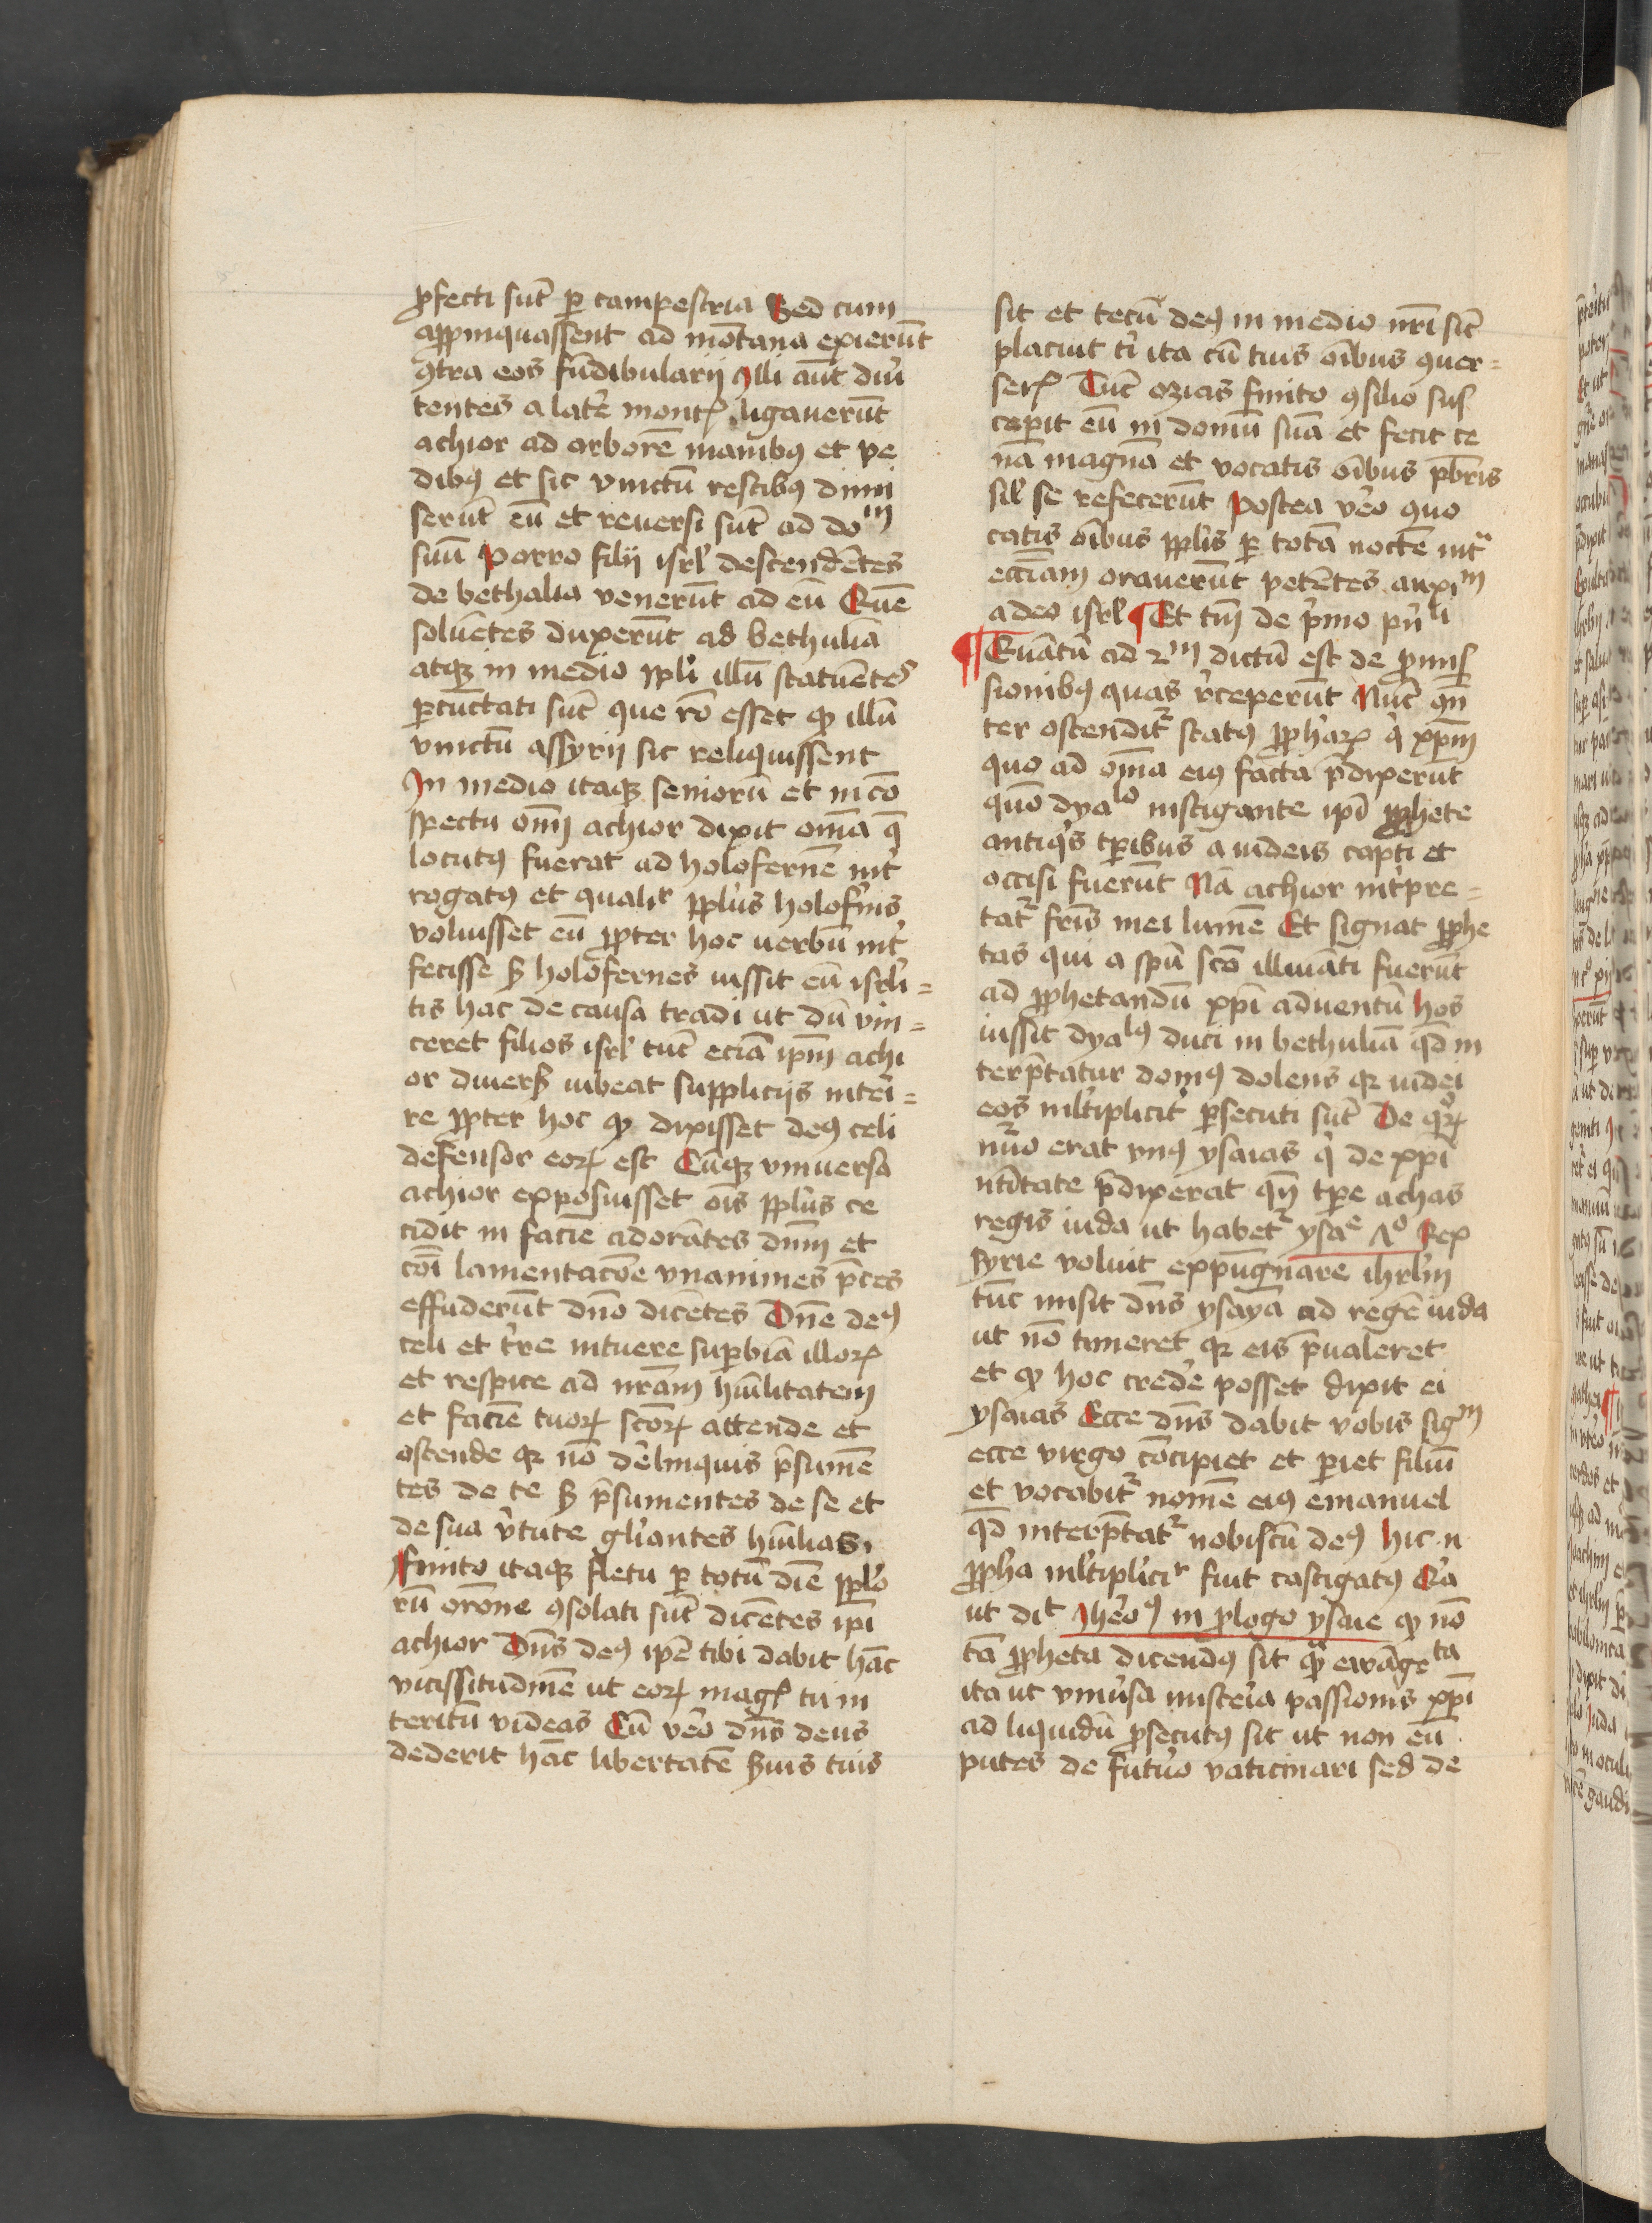 ꝓfecti sūt ꝑ campestria Sed cum
aꝓpinquassent ad mōtana exierūt
ꝯtra eos fūdibularij Illi aūt diu̾
tentes a late̾ montꝭ ligauerūt
achior ad arborē manibꝫ et pe
dibꝫ et sic vinctū restibꝫ dimi
serūt eū et reuersi sūt ad doᵐ
suū Porro filij isrl̕ descendētes
de bethalia venerūt ad eū Quē
soluētes duxerūt ad bethuliā
atqꝫ in medio ppl̕i illū statuētes
ꝑcūctati sūt que rō esset ꝙ illū
vinctū assyrij sic reliquissent
In medio itaqꝫ seniorū et in cō
spectu om̄ achior dixit om̄a q̄
locutꝫ fuerat ad holofernē int̾
rogatꝫ et qualit̾ ppl̕us holof̾nis
voluisset eū ꝓpter hoc uerbū int̾
fecisse Sꝫ holofernes iussit eū isrl̕i=
tis hac de causa tradi ut dū vin=
ceret filios isrl̕ tūc eciā ipm̄ achi
or diuersꝭ iubeat supplicijs intei=
re ꝓpter hoc ꝙ dixisset deꝫ celi
defensor eoꝝ est Cūqꝫ vniuersa
achior exposuisset oīs ppl̕us ce
cidit in faciē adorātes dn̄m et
cōi lamentacōe vnanimes p̄ces
effuderūt dn̄o dicētes Dn̄e deꝫ
celi et t̾re intuere suꝑbiā illoꝝ
et respice ad nr̄am hūilitatem
et faciē tuoꝝ sc̄oꝝ attende et
ostende qꝛ nō de̾linquis p̄sumē
tes de te Sꝫ p̄sumentes de se et
de sua v̾tute gl̕iantes hūilias
finito itaqꝫ fletu ꝑ totū diē ppl̕o
rū orōne ꝯsolati sūt dicētes ipī
achior Dn̄s deꝫ ipē tibi dabit hāc
vicissitudinē ut eoꝝ magꝭ tu in
teritū videas Cū ve̾o dn̄s deus
dederit hāc libertatē Suis tuis
sit et tecū deꝫ in medio nr̄i sīc
placuit t̾i ita cū tuis oībus ꝯuer=
serꝭ Tūc ozias finito ꝯsilio sus
cepit eū in domū suā et fecit ce
nā magnā et vocatis oībus pb̄ris
sil̕ se refecerūt Postea ve̾o ꝯuo
catis oībus ppl̕is ꝑ totā noctē int̾ᵃ
ecc̄iam orauerūt petētes auxiᵐ
a deo isrl̕ ¶ Et tm̄ de p̾mo pn̄ˡⁱ
¶ Quātū ad 2ᵐ dictū est de ꝓmis
sionibꝫ quas r̾ceperūt Nūc ꝯn̄
ter ostendit̾ statꝫ ꝓph̾aꝝ q̾ xp̄m
quo ad om̄a eiꝫ facta p̄dixerūt
quō dyaˡᵒ instigante ipī ꝓphete
antiq̾s tꝑibus a iudeis capti et
occisi fuerūt Nā achior int̾pre=
tat̾ fr̄is mei lumē Et signat ꝓphe
tas qui a spū sc̄o illuīati fuerūt
ad ꝓphetandū xp̄i aduentū hos
iussit dyaˡꝫ duci in bethuliā qd̄ in
terp̄tatur domꝫ dolens qꝛ iudei
eos ml̕tiplicit̾ ꝑsecuti sūt De qͦꝝ
nūo erat vnꝫ ysaias q̾ de xp̄i
nt̄itate p̄dixerat qn̄ tꝑe achas
regis iuda ut habet̾ ysaᵉ 7ͦ Rex
syrie voluit expugnare ihrl̕m
tūc misit dn̄s ysayā ad regē iuda
ut nō timeret qꝛ eis p̄ualeret
et ꝙ hoc crede̾ posset dixit ei
ysaias Ecce dn̄s dabit vobis sigᵐ
ecce virgo cōcipiet et ꝑiet filiū
et vocabit̾ nomē eiꝫ emanuel
qd̄ interp̄tat̾ nobiscū deꝫ hic n
ꝓpha ml̕tiplicit̾ fuit castigatꝫ Q̾a
ut diᵗ Ihe̾oꝫ in ꝓlogo ysaie ꝙ nō
tā ꝓpheta dicendꝫ sit qͣ ewāgeᵗᵃ
ita ut vniu̾sa miste̾ia passionis xp̄i
ad liquidū ꝓsecutꝫ sit ut non eū
putes de futu̾o vaticinari sed de